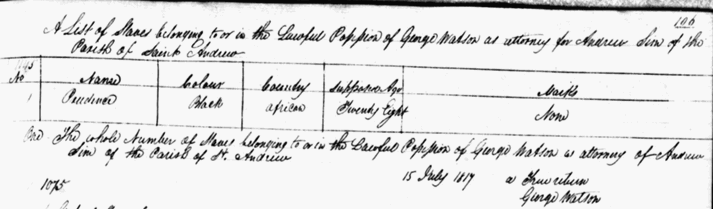 106
A List of Slaves belonging to or in the Lawful Possession of George Watson as attorney for Andrew Sim of the
Parish of Saint Andrew
No Name Colour Country Supposed Age Marks
1 Prudence Black African Twenty Eight None
One The whole Number of Slaves belonging to or in the Lawful Possession of George Watson as attorney of Andrew
Sim of the Parish of St. Andrew
1075 15 July 1817 a True return
George Watson